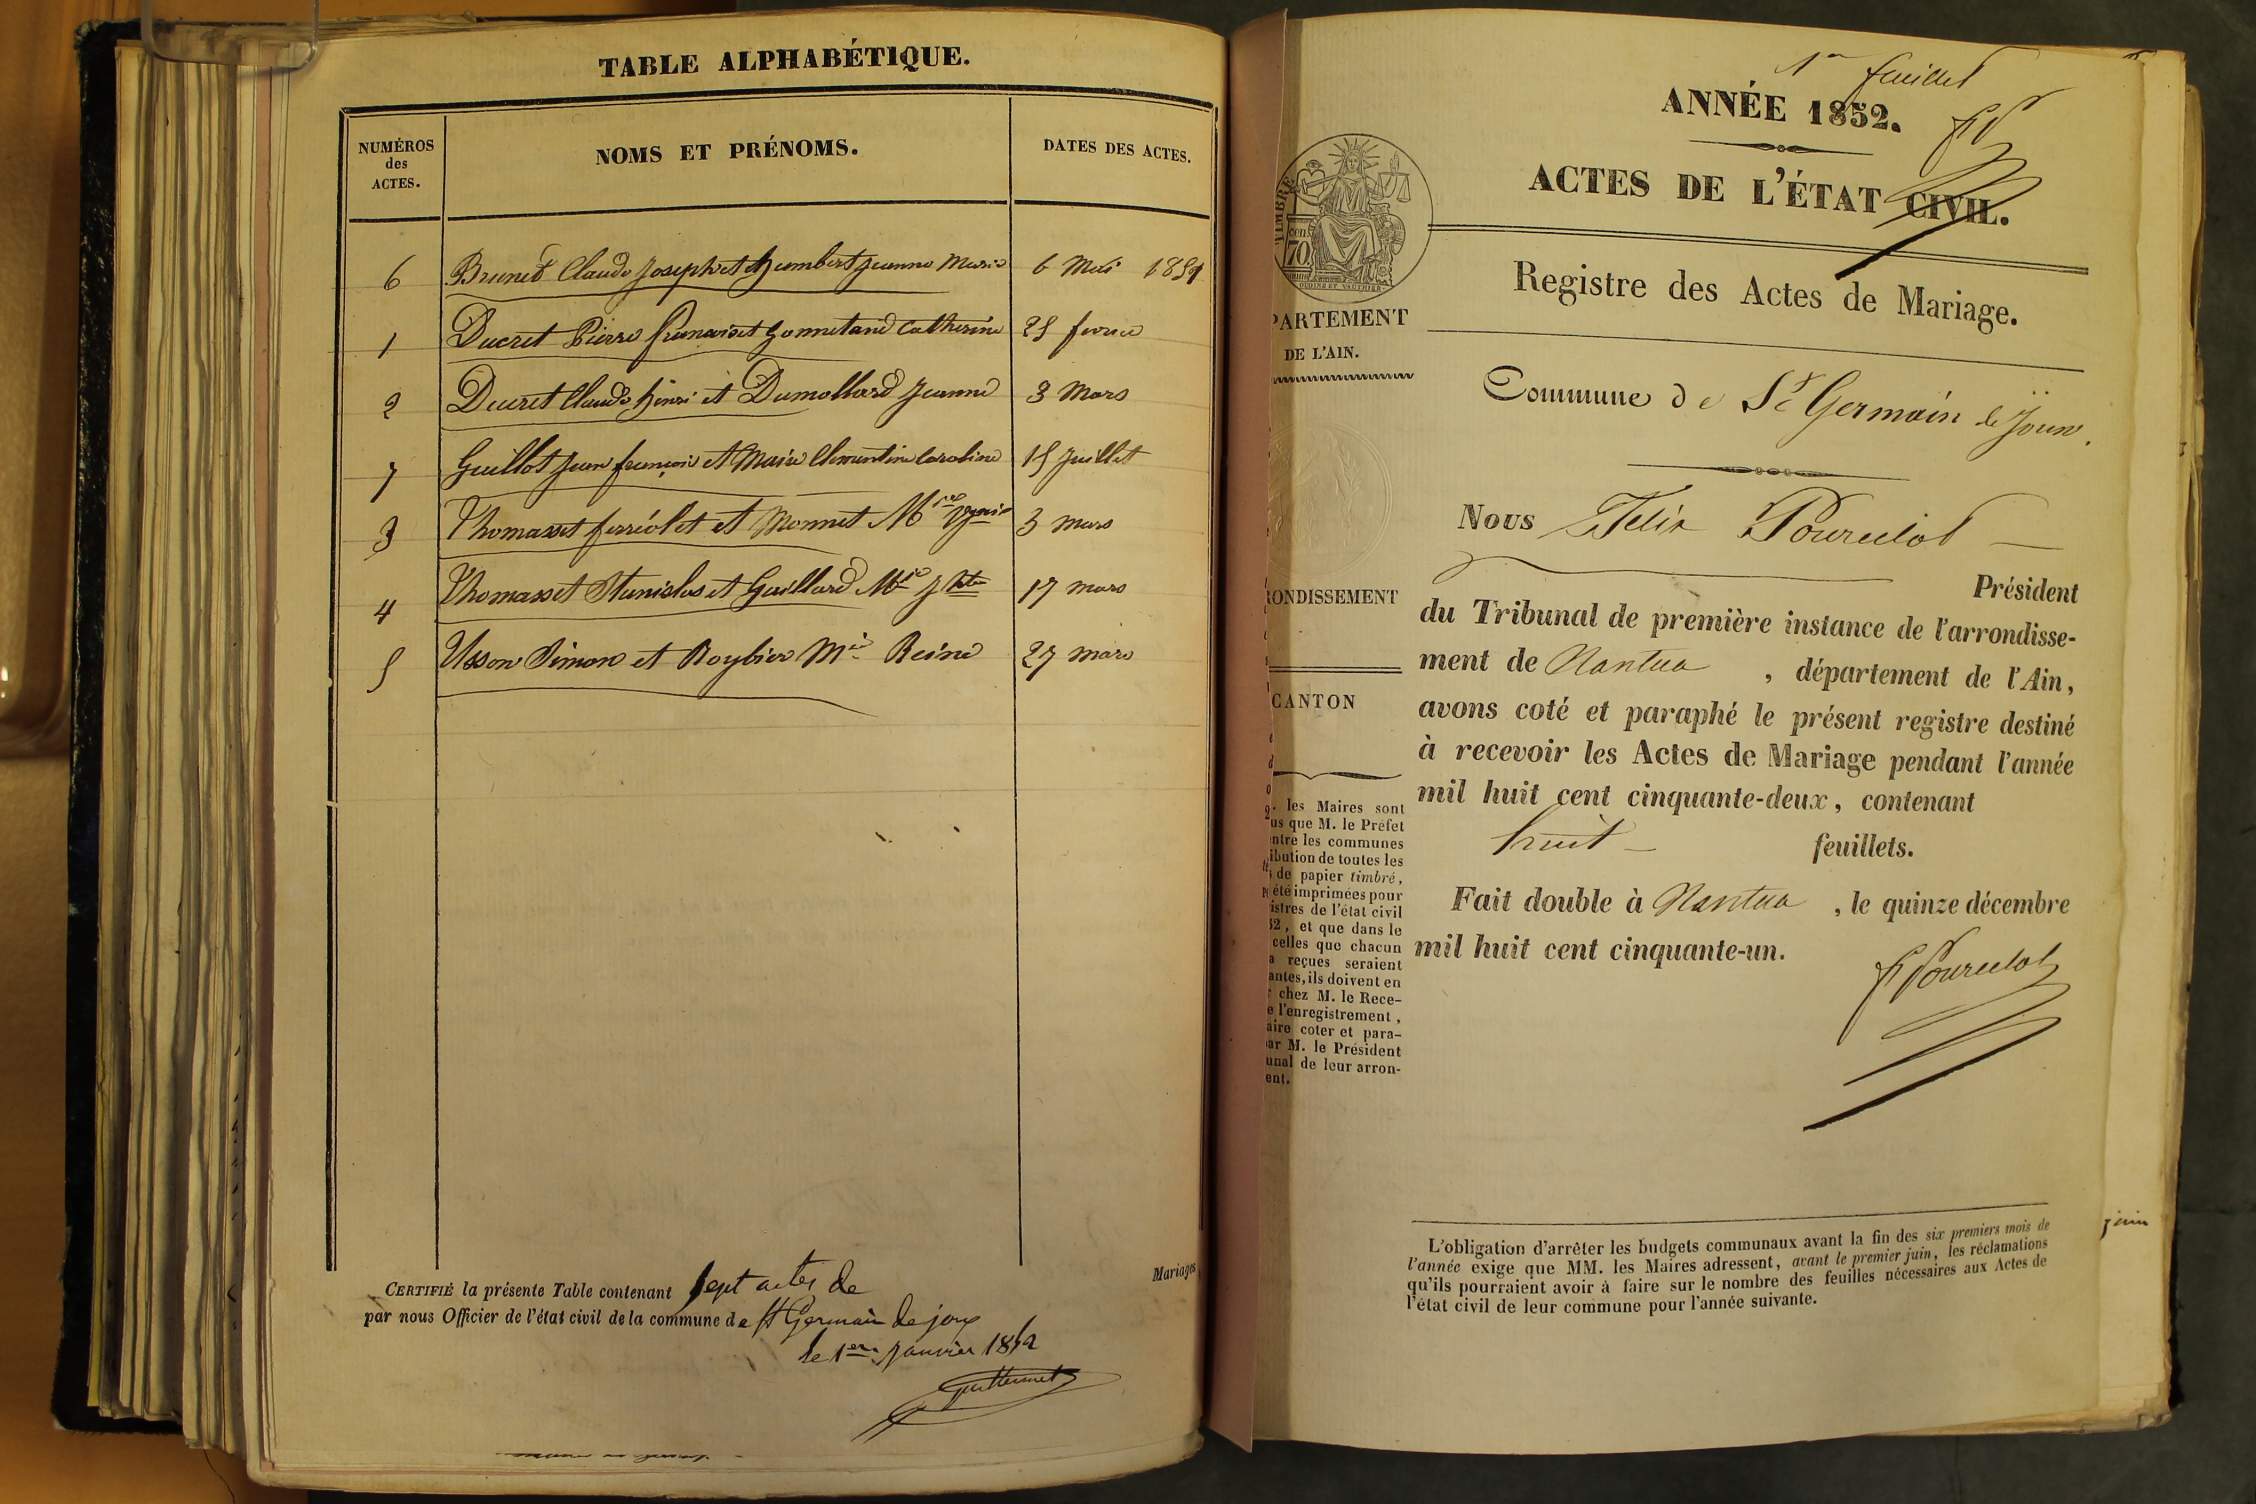 TABLE ALPHABÉTIQUE.
NUMÉROS
des
ACTES.
NOMS ET PRÉNOMS.
DATES DES ACTES.
6 Brunet Claude Joseph et Humbert Jeanne Marie 6 Mai 1851
1 Ducret Pierre francois et Gonnetand Catherine 25 fevrier
2 Ducret Claude henri et Dumollard Jeanne 3 Mars
7 Guillot Jean françois et Maire Clementine Caroline 15 Juillet
3 Thomasset ferréolet et Monnet 3 mars
4 Thomasset Stanislas et Guillard Mie 17 mars
5 Usson Simon et Roybier Mie Reine 27 mars
Mariages
CERTIFIÉ la présente Table contenant sept actes de
par nous Officier de l'état civil de la commune de St Germain de joux
le 1er Janvier 1852
Guillermet
1er feuillet
ANNÉE 1852.
FP
ACTES DE L'ÉTAT CIVIL.
TIMBRE
cen.
70
OUDINE ET VAUTHIER
Registre des Actes de Mariage.
PARTEMENT
DE L'AIN.
Commune de St Germain de Joux.
Nous Félix Pourcelot
RONDISSEMENT
Président
du Tribunal de première instance de l'arrondisse-
ment de Nantua , département de l'Ain,
CANTON
avons coté et paraphé le présent registre destiné
à recevoir les Actes de Mariage pendant l'année
mil huit cent cinquante-deux, contenant
huit feuillets.
Fait double à Nantua , le quinze décembre
mil huit cent cinquante-un.
F Pourcelot
les Maires sont
us que M. le Préfet
ntre les communes
ibution de toutes les
de papier timbré,
été imprimées pour
istres de l'état civil
52, et que dans le
celles que chacun
a reçues seraient
antes, ils doivent en
chez M. le Rece-
e l'enregistrement,
aire coter et para-
ar M. le Président
unal de leur arron-
ent.
L'obligation d'arrêter les budgets communaux avant la fin des six premiers mois de
l'année exige que MM. les Maires adressent, avant le premier juin, les réclamations
qu'ils pourraient avoir à faire sur le nombre des feuilles nécessaires aux Actes de
l'état civil de leur commune pour l'année suivante.
juin